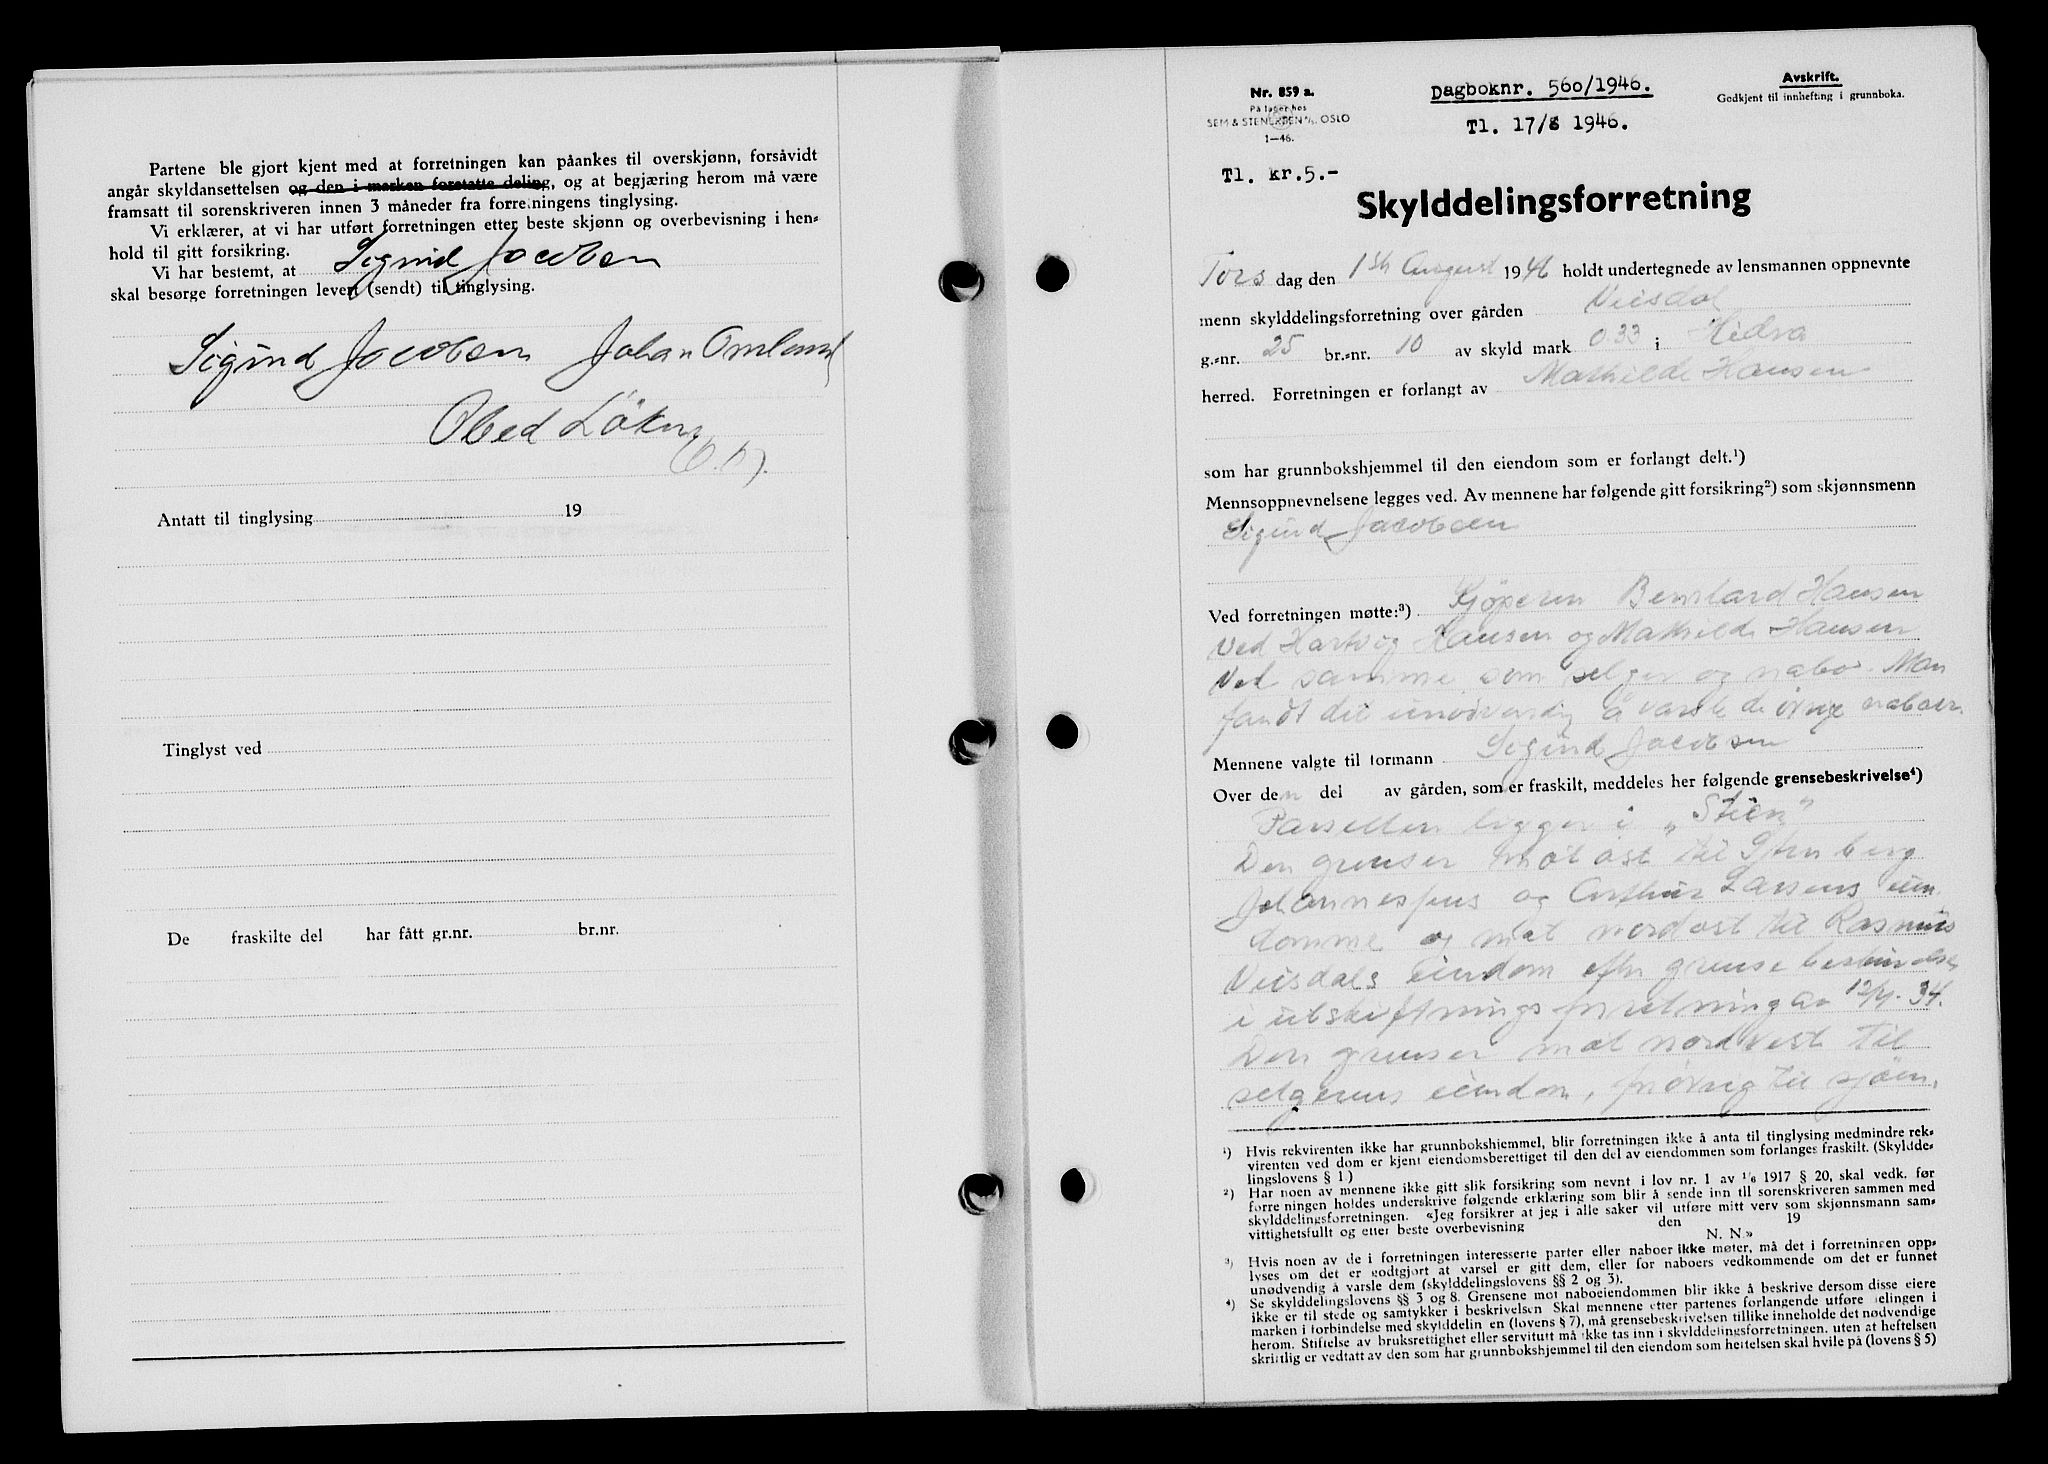 Partene ble gjort kjent med at forretningen kan påankes til overskjønn, forsåvidt
angår skyldansettelsen og den i marken foretatte deling, og at begjæring herom må være
framsatt til sorenskriveren innen 3 måneder fra forretningens tinglysing.
Vi erklærer, at vi har utført forretningen etter beste skjønn og overbevisning i hen=
hold til gitt forsikring.
Vi har bestemt, at Sigurd Jacobsen
skal besørge forretningen levert (sendt) til tinglysing.
Sigurd Jacobsen Johan Omland
Obed Löken
Antatt til tinglysing 19
Tinglyst ved
De fraskilte del har fått gr.nr. br.nr.
Nr. 859 a.
På lager hos
SEM & STENERSEN A/S, OSLO
1—46.
Dagboknr. 560/1946.
Tl. 17/8 1946.
Avskrift.
Godkjent til innhefting i grunnboka.
Tl. kr.5.-
Skylddelingsforretning
Tors dag den 1ste August 1946 holdt undertegnede av lensmannen oppnevnte
menn skylddelingsforretning over gården Veisdal
g.=nr. 25 br.=nr. 10 av skyld mark 0.33 i Hidra
herred. Forretningen er forlangt av Mathilde Hansen
som har grunnbokshjemmel til den eiendom som er forlangt delt.¹)
Mennsoppnevnelsene legges ved. Av mennene har følgende gitt forsikring²) som skjønnsmenn
Sigurd Jacobsen
Ved forretningen møtte:³) Kjöperen Bernhard Hansen
ved Hartvig Hansen og Mathilde Hansen
ved samme som selger og nabo. Man
fandt det unødvendig å varsle de øvrige naboer.
Mennene valgte til formann Sigurd Jacobsen
Over den del av gården, som er fraskilt, meddeles her følgende grensebeskrivelse⁴)
Parsellen ligger i „Stien"
Den grenser mot øst til
Johannesens og Arthur Larsens eien
domme og mot nordøst til Rasmus
Veisdals eiendom efter grensebeskrivelse
i utskiftningsforretning av 34.
Den grenser mot nordvest til
selgerens eiendom, forøvrig til sjöen.
¹) Hvis rekvirenten ikke har grunnbokshjemmel, blir forretningen ikke å anta til tinglysing medmindre rek=
virenten ved dom er kjent eiendomsberettiget til den del av eiendommen som forlanges fraskilt. (Skyldde=
lingslovens § 1.)
²) Har noen av mennene ikke gitt slik forsikring som nevnt i lov nr. 1 av 1/6 1917 § 20, skal vedk. før
forretningen holdes underskrive følgende erklæring som blir å sende inn til sorenskriveren sammen med
skylddelingsforretningen. «Jeg forsikrer at jeg i alle saker vil utføre mitt verv som skjønnsmann sam=
vittighetsfullt og etter beste overbevisning den 19
N. N.»
³) Hvis noen av de i forretningen interesserte parter eller naboer ikke møter, må det i forretningen opp=
lyses om det er godtgjort at varsel er gitt dem, eller for naboers vedkommende om det er funnet
unødvendig å varsle dem (skylddelingslovens §§ 2 og 3).
⁴) Se skylddelingslovens §§ 3 og 8. Grensene mot naboeiendommen blir ikke å beskrive dersom disse eiere
ikke er til stede og samtykker i beskrivelsen Skal mennene etter partenes forlangende utføre delingen i
marken i forbindelse med skylddelingen (lovens § 7), må grensebeskrivelsen tillike inneholde det nødvendige
herom. Stiftelse av bruksrettighet eller servitutt må ikke tas inn i skylddelingsforretningen, uten at heftelsen
skriftlig er vedtatt av den som har grunnbokshjemmel til den eiendom som heftelsen skal hvile på (lovens § 5)